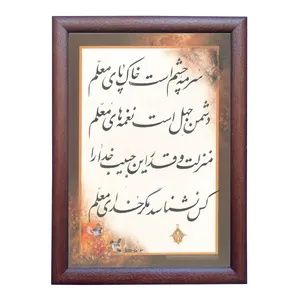 سرمه چشم است خاک پای معلم
دشمن جهل است نغمه های معلم
منزلت و قدر این حبیب خدا را
کس نشناسد مگر خدای معلم